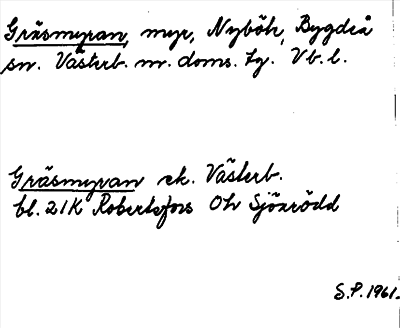 Gräsmyran, myr, Nyböle, Bygdeå
sn. Västerb. nr. doms. tg. Vb. l.
Gräsmyran ek. Västerb.
bl. 21K Robertsfors Oh Sjöarödd
S.P. 1961.